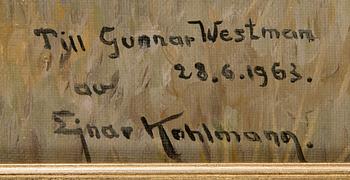 Till Gunnar Westman
28.6.1963.
av
Ejnar Kohlmann.